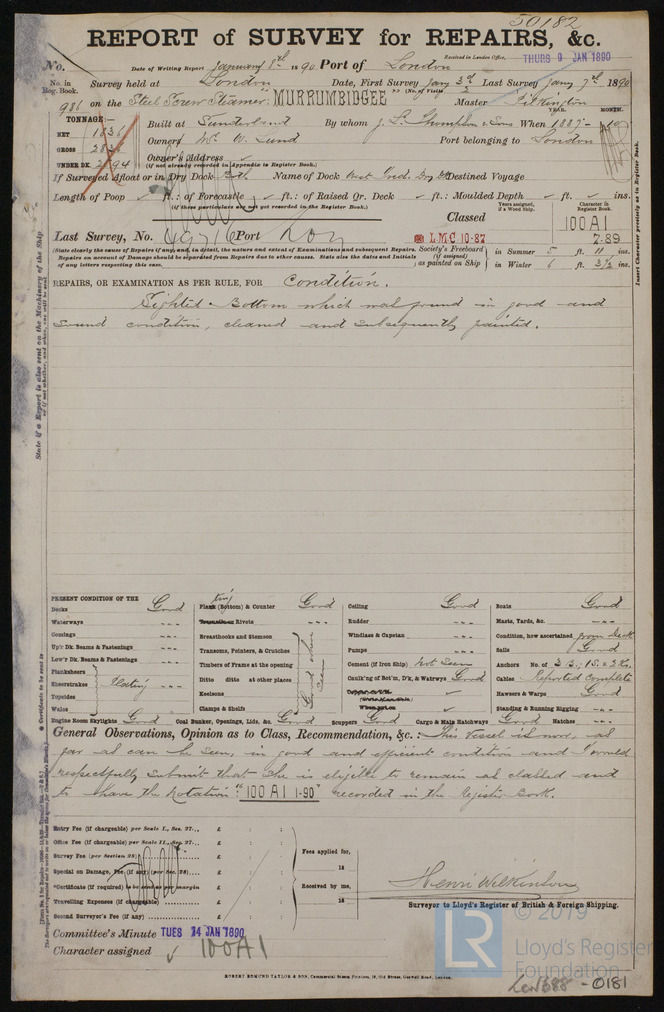 50182
REPORT of SURVEY for REPAIRS, &c.
No. Date of Writing Report January 8th 1890 Port of London Received in London Office, THURS 9 JAN 1890
No. in Reg. Book. Survey held at London Date, First Survey Jany 3rd Last Survey Jany 7th 1890
(No. of Visits 2)
986 on the Steel Screw Steamer "MURRUMBIDGEE" Master Pilkington
TONNAGE:— YEAR. MONTH.
NET 1836 Built at Sunderland By whom J. L. Thompson & Sons When 1887 - 10
GROSS Owners W. W. Lund Port belonging to London
Owner's Address
(if not already recorded in Appendix to Register Book.)
UNDER DK.
If Surveyed Afloat or in Dry Dock Name of Dock West Ind. Dry Dk Destined Voyage
Length of Poop ✓ ft.: of Forecastle ✓ ft.: of Raised Qr. Deck ✓ ft.: Moulded Depth ✓ ft. ✓ ins.
(if these particulars are not yet recorded in the Register Book.)
Years assigned, if a Wood Ship. Character in Register Book.
Classed 100 A1
7-89
Last Survey, No. 49716 Port Lon
LMC 10·87
Society's Freeboard (if assigned) as painted on Ship
in Summer 5 ft. " ins.
in Winter 5 ft. 3½ ins.
(State clearly the cause of Repairs if any, and, in detail, the nature and extent of Examinations and subsequent Repairs.
Repairs on account of Damage should be separated from Repairs due to other causes. State also the dates and Initials
of any letters respecting this case.
REPAIRS, OR EXAMINATION AS PER RULE, FOR Condition.
Sighted Bottom which was found in good and
sound condition, cleaned and subsequently painted.
PRESENT CONDITION OF THE
Decks Good
Waterways ---
Comings ---
Up'r Dk. Beams & Fastenings ---
Low'r Dk. Beams & Fastenings ---
Planksheers
Sheerstrakes Plating ---
Topsides
Wales
Engine Room Skylights Good
Plank (Bottom) & Counter Good
Rivets ---
Breasthooks and Stemson
Transoms, Pointers, & Crutches
Timbers of Frame at the opening
Ditto ditto at other places
Keelsons
Clamps & Shelfs
Good where seen
Coal Bunker, Openings, Lids, &c. Good
Ceiling Good
Rudder ---
Windlass & Capstan ---
Pumps ---
Cement (if Iron Ship) Not Seen
Caulk'ng of Bot'm, D'k, & Watrwys Good
Scuppers Good
Cargo & Main Hatchways Good
Boats Good
Masts, Yards, &c. ---
Condition, how ascertained from deck
Sails Good
Anchors No. of 3 B.; 1 S. & 2 Ks.
Cables Reported Complete
Hawsers & Warps Good
Standing & Running Rigging ---
Hatches ---
General Observations, Opinion as to Class, Recommendation, &c.:— This vessel is now, as
far as can be seen, in good and efficient condition and I would
respectfully submit that she is eligible to remain as classed and
to have the notation "100 A1 1-90" recorded in the Register Book.
Entry Fee (if chargeable) per Scale I., Sec. 27... £ : :
Office Fee (if chargeable) per Scale II., Sec. 27... £ : :
Survey Fee (per Section 28) £ : :
Special on Damage, Fee (if any) (per Sec. 28) £ : :
*Certificate (if required) to be sent as per margin £ : :
Travelling Expenses (if chargeable) £ : :
Second Surveyor's Fee (if any) £ : :
Fees applied for,
18
Received by me,
18
Henri Wilkinson
Surveyor to Lloyd's Register of British & Foreign Shipping.
Committee's Minute TUES 14 JAN 1890
Character assigned 100A1
ROBERT EDMUND TAYLOR & SON, Commercial Steam Printers, 19, Old Street, Goswell Road, London.
© 2019
LR
Lloyd's Register
Foundation
-0181
Insert Character precisely as in Register Book.
State if a Report is also sent on the Machinery of the Ship